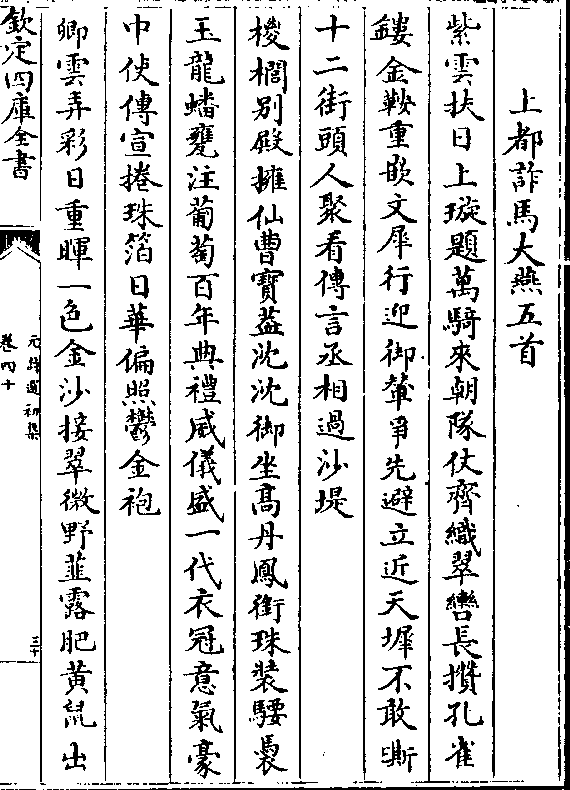 上都詐馬大燕五首
紫雲扶日上璇題萬騎來朝隊仗齊織翠轡長攢孔雀
鏤金鞍重嵌文犀行迎御輦爭先避立近天墀不敢嘶
十二街頭人聚看傳言丞相過沙堤
椶櫚别殿擁仙曹寳葢沈沈御坐髙丹鳳銜珠装騕褭
玉龍蟠甕注葡萄百年典禮威儀盛一代衣冠意氣豪
中使傳宣捲珠箔日華偏照鬱金袍
卿雲弄彩日重暉一色金沙接翠微野韮露肥黄鼠出
欽定四庫全書
元詩選初集
卷四十
三十